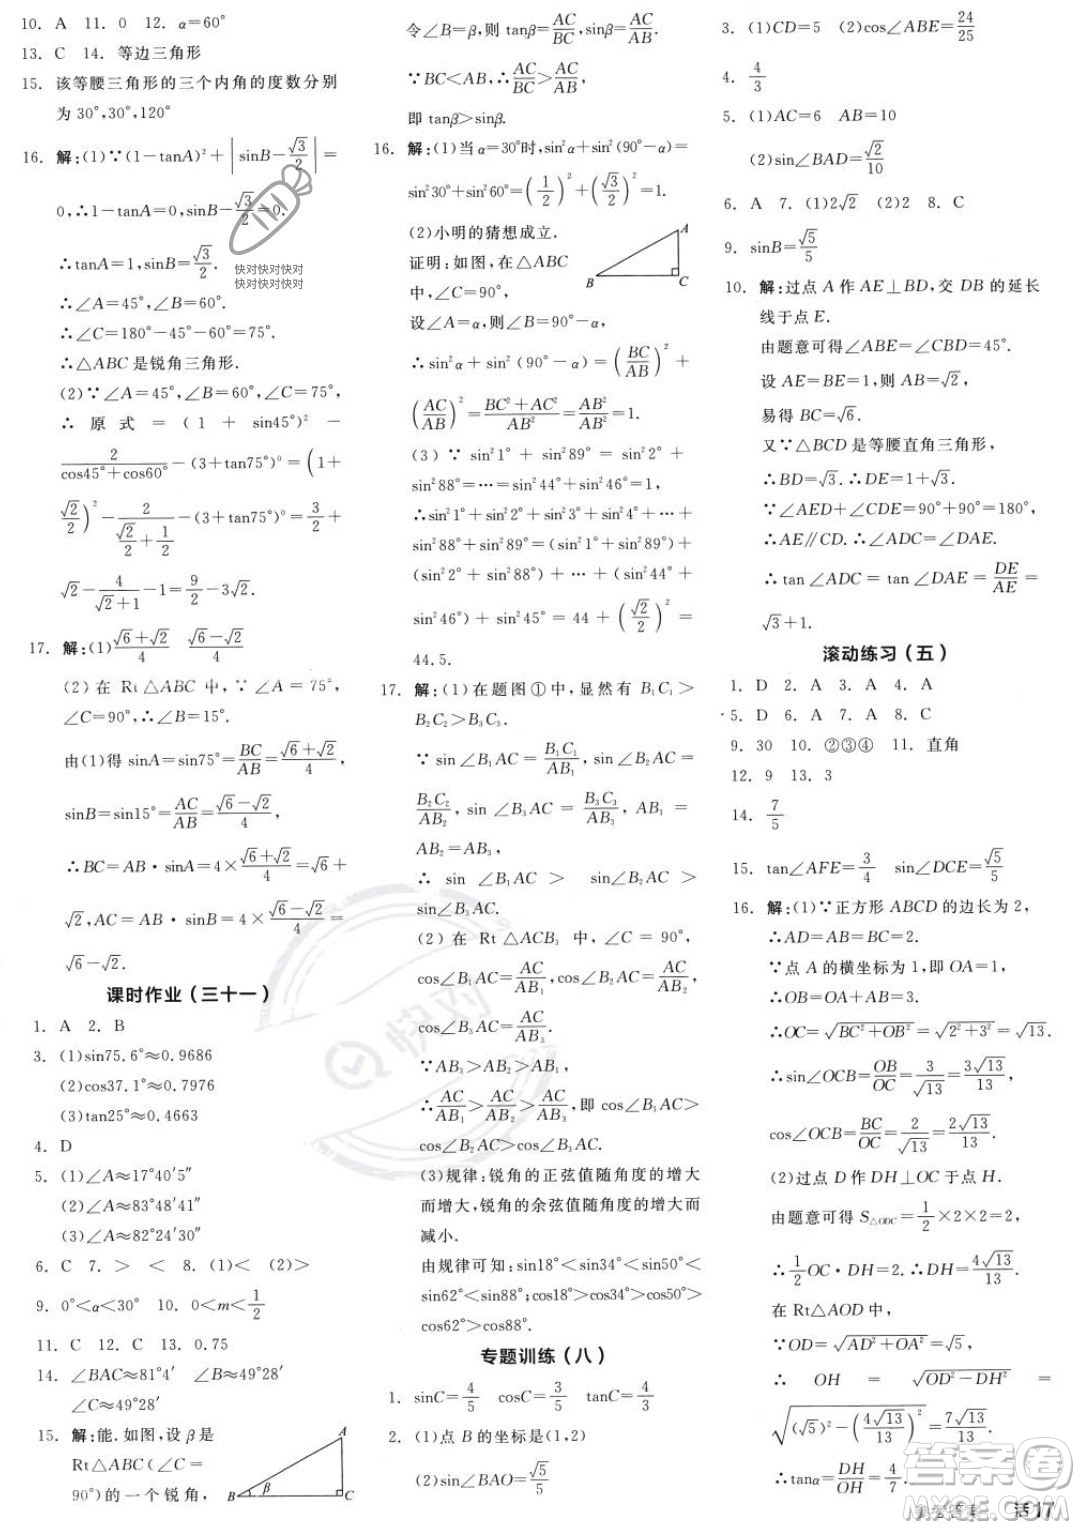 10. A 11. 0 12. α=60°
13. C 14. 等边三角形
15. 该等腰三角形的三个内角的度数分别
为 30°,30°,120°
16. 解:(1)∵(1-tanA)²+|sinB-√3/2|=
0,∴1-tanA=0,sinB-√3/2=0.
∴tanA=1,sinB=√3/2.
∴∠A=45°,∠B=60°.
∴∠C=180°-45°-60°=75°.
∴△ABC是锐角三角形.
(2)∵∠A=45°,∠B=60°,∠C=75°,
∴ 原 式 = (1 + sin45°)² -
2/(cos45°+cos60°)-(3+tan75°)⁰=(1+
√2/2)²-2/(√2/2+1/2)-(3+tan75°)⁰=3/2+
√2-4/(√2+1)-1=9/2-3√2.
17. 解:(1)(√6+√2)/4 (√6-√2)/4
(2)在 Rt△ABC 中,∵∠A=75°,
∠C=90°,∴∠B=15°.
由(1)得 sinA=sin75°=BC/AB=(√6+√2)/4,
sinB=sin15°=AC/AB=(√6-√2)/4,
∴BC=AB·sinA=4×(√6+√2)/4=√6+
√2,AC=AB·sinB=4×(√6-√2)/4=
√6-√2.
课时作业(三十一)
1. A 2. B
3. (1)sin75.6°≈0.9686
(2)cos37.1°≈0.7976
(3)tan25°≈0.4663
4. D
5. (1)∠A≈17°40′5″
(2)∠A≈83°48′41″
(3)∠A≈82°24′30″
6. C 7. > < 8. (1)< (2)>
9. 0°<α<30° 10. 0<m<1/2
11. C 12. C 13. 0.75
14. ∠BAC=81°4′ ∠B≈49°28′
∠C≈49°28′
15. 解:能.如图,设β是
Rt△ABC(∠C=
90°)的一个锐角,
A
B β C
令∠B=β,则 tanβ=AC/BC,sinβ=AC/AB.
∵BC<AB,∴AC/BC>AC/AB,
即 tanβ>sinβ.
16. 解:(1)当α=30°时,sin²α+sin²(90°-α)=
sin²30°+sin²60°=(1/2)²+(√3/2)²=1.
(2)小明的猜想成立.
证明:如图,在△ABC
中,∠C=90°,
A
B C
设∠A=α,则∠B=90°-α,
∴sin²α+sin²(90°-α)=(BC/AB)²+
(AC/AB)²=(BC²+AC²)/AB²=AB²/AB²=1.
(3)∵sin²1°+sin²89°=sin²2°+
sin²88°=…=sin²44°+sin²46°=1,
∴sin²1°+sin²2°+sin²3°+sin²4°+…+
sin²88°+sin²89°=(sin²1°+sin²89°)+
(sin²2°+sin²88°)+…+(sin²44°+
sin²46°)+sin²45°=44+(√2/2)²=
44.5.
17. 解:(1)在题图①中,显然有B₁C₁>
B₂C₂>B₃C₃.
∵sin∠B₁AC=B₁C₁/AB₁,sin∠B₂AC=
B₂C₂/AB₂,sin∠B₃AC=B₃C₃/AB₃,AB₁=
AB₂=AB₃,
∴sin∠B₁AC>sin∠B₂AC>
sin∠B₃AC.
(2)在 Rt△ACB₃中,∠C=90°,
cos∠B₁AC=AC/AB₁,cos∠B₂AC=AC/AB₂,
cos∠B₃AC=AC/AB₃.
∵AB₃>AB₂>AB₁,
∴AC/AB₁>AC/AB₂>AC/AB₃,即cos∠B₁AC>
cos∠B₂AC>cos∠B₃AC.
(3)规律:锐角的正弦值随角度的增大
而增大,锐角的余弦值随角度的增大而
减小.
由规律可知:sin18°<sin34°<sin50°<
sin62°<sin88°;cos18°>cos34°>cos50°>
cos62°>cos88°.
专题训练(八)
1. sinC=4/5 cosC=3/5 tanC=4/3
2. (1)点B的坐标是(1,2)
(2)sin∠BAO=√5/5
3. (1)CD=5 (2)cos∠ABE=24/25
4. 4/3
5. (1)AC=6 AB=10
(2)sin∠BAD=√2/10
6. A 7. (1)2√2 (2)2 8. C
9. sinB=√5/5
10. 解:过点A作AE⊥BD,交DB的延长
线于点E.
由题意可得∠ABE=∠CBD=45°.
设AE=BE=1,则AB=√2,
易得BC=√6.
又∵△BCD是等腰直角三角形,
∴BD=√3.∴DE=1+√3.
∵∠AED+∠CDE=90°+90°=180°,
∴AE∥CD.∴∠ADC=∠DAE.
∴tan∠ADC=tan∠DAE=DE/AE=
√3+1.
滚动练习(五)
1. D 2. A 3. A 4. A
5. D 6. A 7. A 8. C
9. 30 10. ②③④ 11. 直角
12. 9 13. 3
14. 7/5
15. tan∠AFE=3/4 sin∠DCE=√5/5
16. 解:(1)∵正方形ABCD的边长为2,
∴AD=AB=BC=2.
∵点A的横坐标为1,即OA=1,
∴OB=OA+AB=3.
∴OC=√(BC²+OB²)=√(2²+3²)=√13.
∴sin∠OCB=OB/OC=3/√13=3√13/13,
cos∠OCB=BC/OC=2/√13=2√13/13.
(2)过点D作DH⊥OC于点H.
由题意可得S△ODC=1/2×2×2=2,
∴1/2 OC·DH=2.∴DH=4√13/13.
在Rt△AOD中,
∵OD=√(AD²+OA²)=√5,
∴OH=√(OD²-DH²)=
√((√5)²-(4√13/13)²)=7√13/13.
∴tanα=DH/OH=4/7.
快对快对快对
快对快对快对
快对
答案圈
参考答案 活17